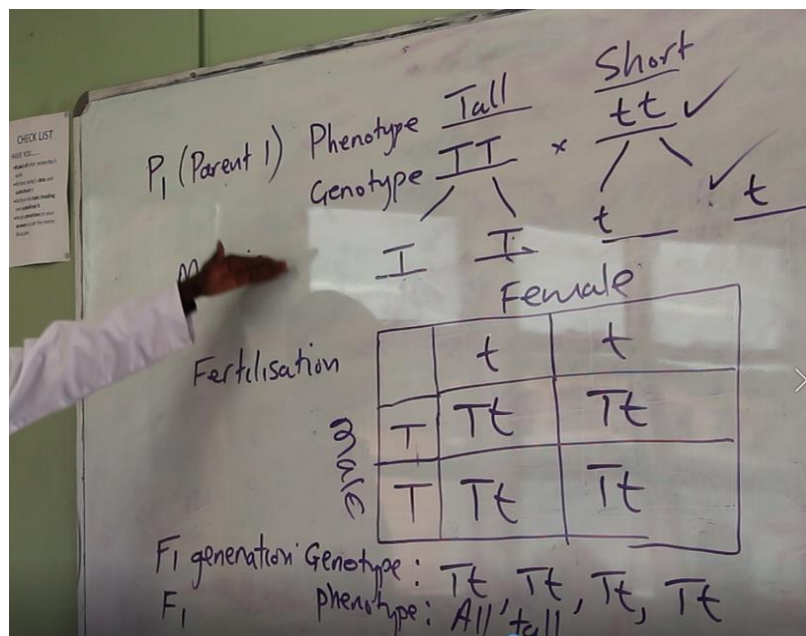 CHECK LIST
Tall
Short
P1 (Parent 1) Phenotype
Genotype TT × tt
T T t t
Female
Fertilisation
t t
male
T Tt Tt
T Tt Tt
F1 generation Genotype: Tt, Tt, Tt, Tt
F1 phenotype: All tall